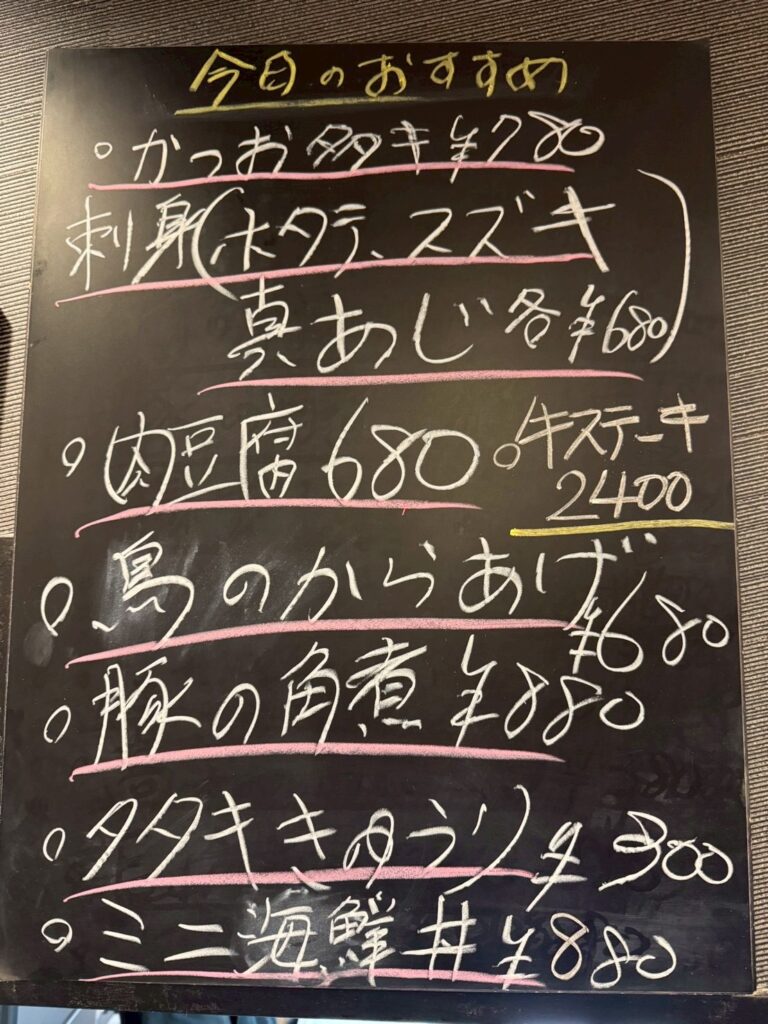 今日のおすすめ
○かつお多タキ¥780
刺身(ホタテ、スズキ
真あじ各¥680)
○肉豆腐680
○牛ステーキ
2400
○鳥のからあげ
¥680
○豚の角煮¥880
○タタキきゅうり¥300
○ミニ海鮮丼¥880